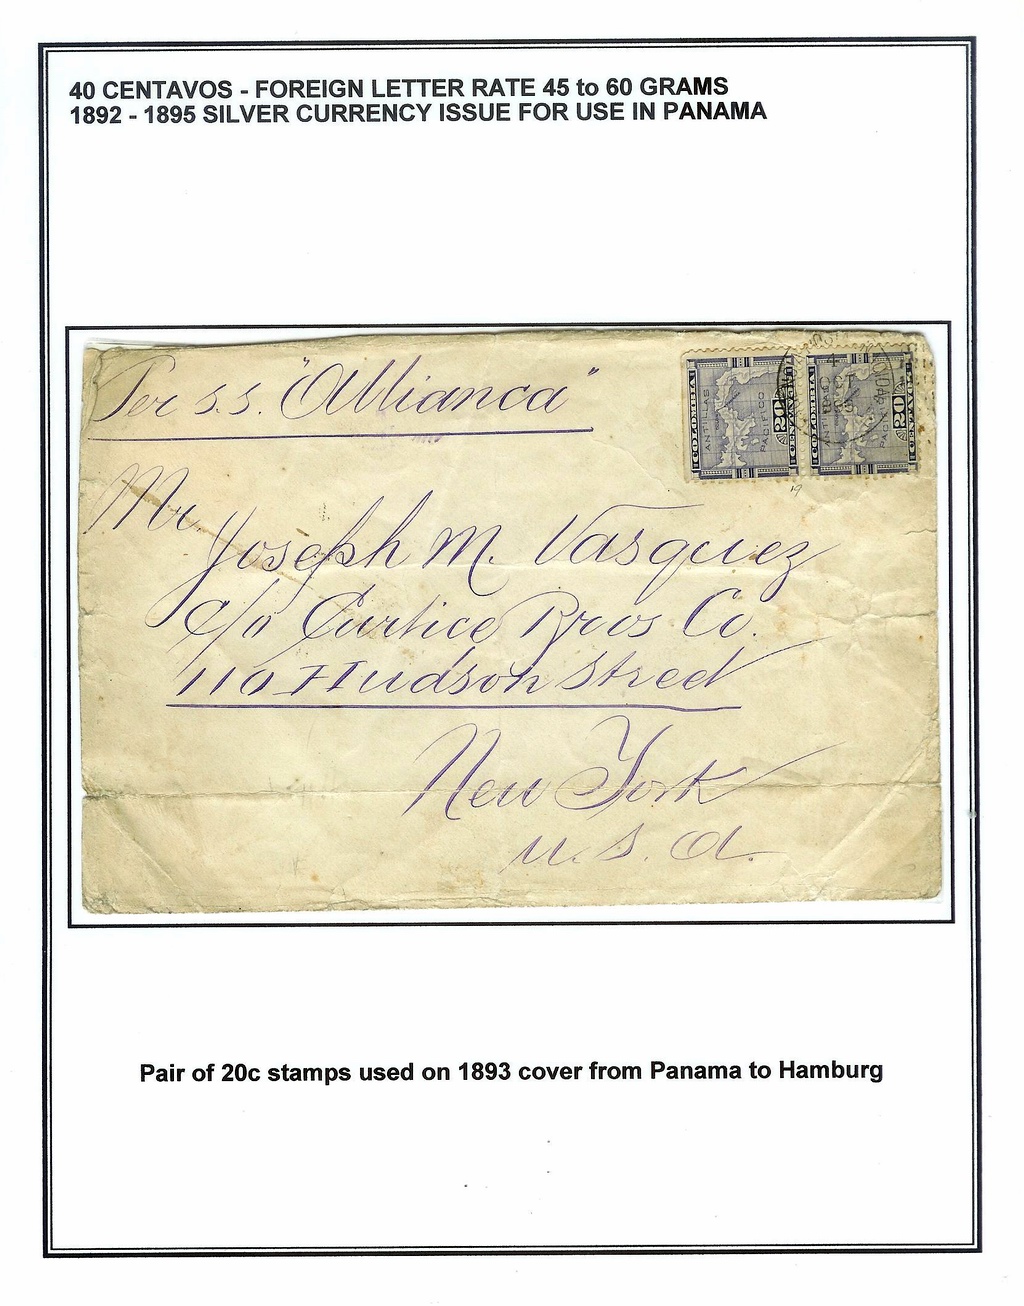 40 CENTAVOS - FOREIGN LETTER RATE 45 to 60 GRAMS
1892 - 1895 SILVER CURRENCY ISSUE FOR USE IN PANAMA
Per S.S. "Allianca"
COLOMBIA
ANTILLAS
PACIFICO
20
CENTAVOS
COLOMBIA
20
CENTAVOS
4
OCT
Mr.
Joseph M. Vasquez
c/o Curtice Bros Co.
110 Hudson Street
New York
U.S.A.
Pair of 20c stamps used on 1893 cover from Panama to Hamburg